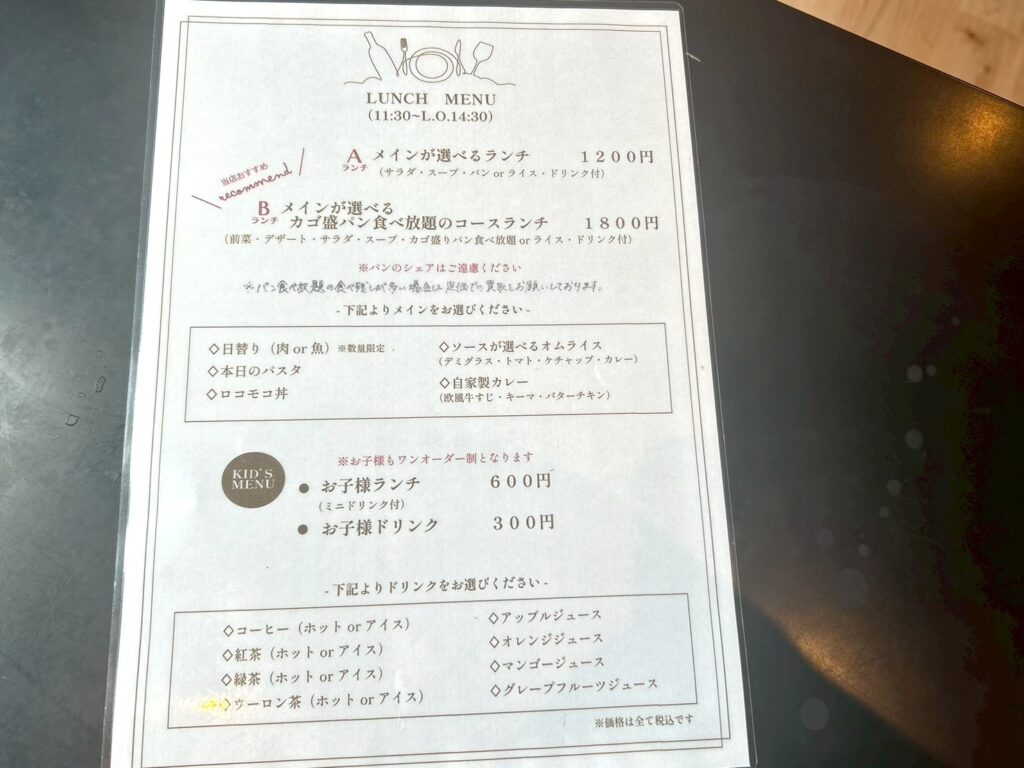 LUNCH MENU
(11:30~L.O.14:30)
当店おすすめ
recommend
Aランチ メインが選べるランチ 1200円
(サラダ・スープ・パン or ライス・ドリンク付)
Bランチ メインが選べる
カゴ盛パン食べ放題のコースランチ 1800円
(前菜・デザート・サラダ・スープ・カゴ盛りパン食べ放題 or ライス・ドリンク付)
※パンのシェアはご遠慮ください
※パン食べ放題の食べ残しが多い場合は定価での買取をお願いしております。
- 下記よりメインをお選びください -
◇日替り（肉 or 魚）※数量限定
◇本日のパスタ
◇ロコモコ丼
◇ソースが選べるオムライス
(デミグラス・トマト・ケチャップ・カレー)
◇自家製カレー
(欧風牛すじ・キーマ・バターチキン)
KID'S
MENU
※お子様もワンオーダー制となります
● お子様ランチ 600円
(ミニドリンク付)
● お子様ドリンク 300円
- 下記よりドリンクをお選びください -
◇コーヒー（ホット or アイス）
◇紅茶（ホット or アイス）
◇緑茶（ホット or アイス）
◇ウーロン茶（ホット or アイス）
◇アップルジュース
◇オレンジジュース
◇マンゴージュース
◇グレープフルーツジュース
※価格は全て税込です